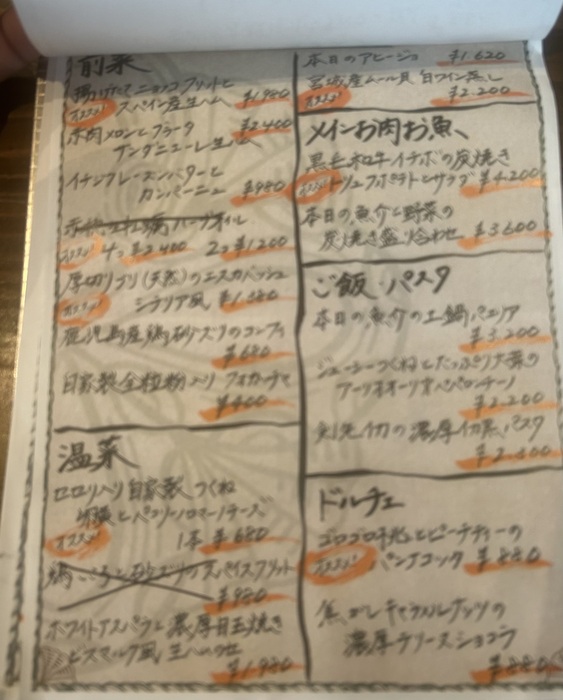 前菜
揚げたてニョッコフリットと
オススメ! スペイン産生ハム ¥1,980
赤肉メロンとブラータ ¥2,400
アンダニューレ生ハム
イチジクレーズンバターと
カンパーニュ ¥980
ハーブオイル
オススメ 4コ ¥2,400 2コ ¥1,200
厚切りブリ(天然)のエスカベッシュ
オススメ! シチリア風 ¥1,380
鹿児島産鶏砂ズリのコンフィ
¥680
自家製全粒粉入り フォカッチャ
¥400
温菜
自家製つくね
卵黄とペコリーノロマーノチーズ
オススメ! 1本 ¥680
砂ズリのスパイスフリット
¥980
ホワイトアスパラと濃厚目玉焼き
ビスマルク風 生ハムのせ
¥1,980
本日のアヒージョ ¥1,620
宮城産ムール貝 白ワイン蒸し
オススメ! ¥2,200
メインお肉お魚
黒毛和牛イチボの炭焼き
オススメ! トリュフポテトとサラダ ¥4,200
本日の魚介と野菜の
炭焼き盛り合わせ ¥3,600
ご飯・パスタ
本日の魚介の土鍋パエリア
¥3,200
ジューシーつくねとたっぷり大葉の
アーリオオーリオペペロンチーノ
¥2,200
の濃厚 パスタ
ドルチェ
ゴロゴロ桃とピーチティーの
オススメ! パンナコッタ ¥880
焦がしキャラメルナッツの
濃厚テリーヌショコラ
¥880